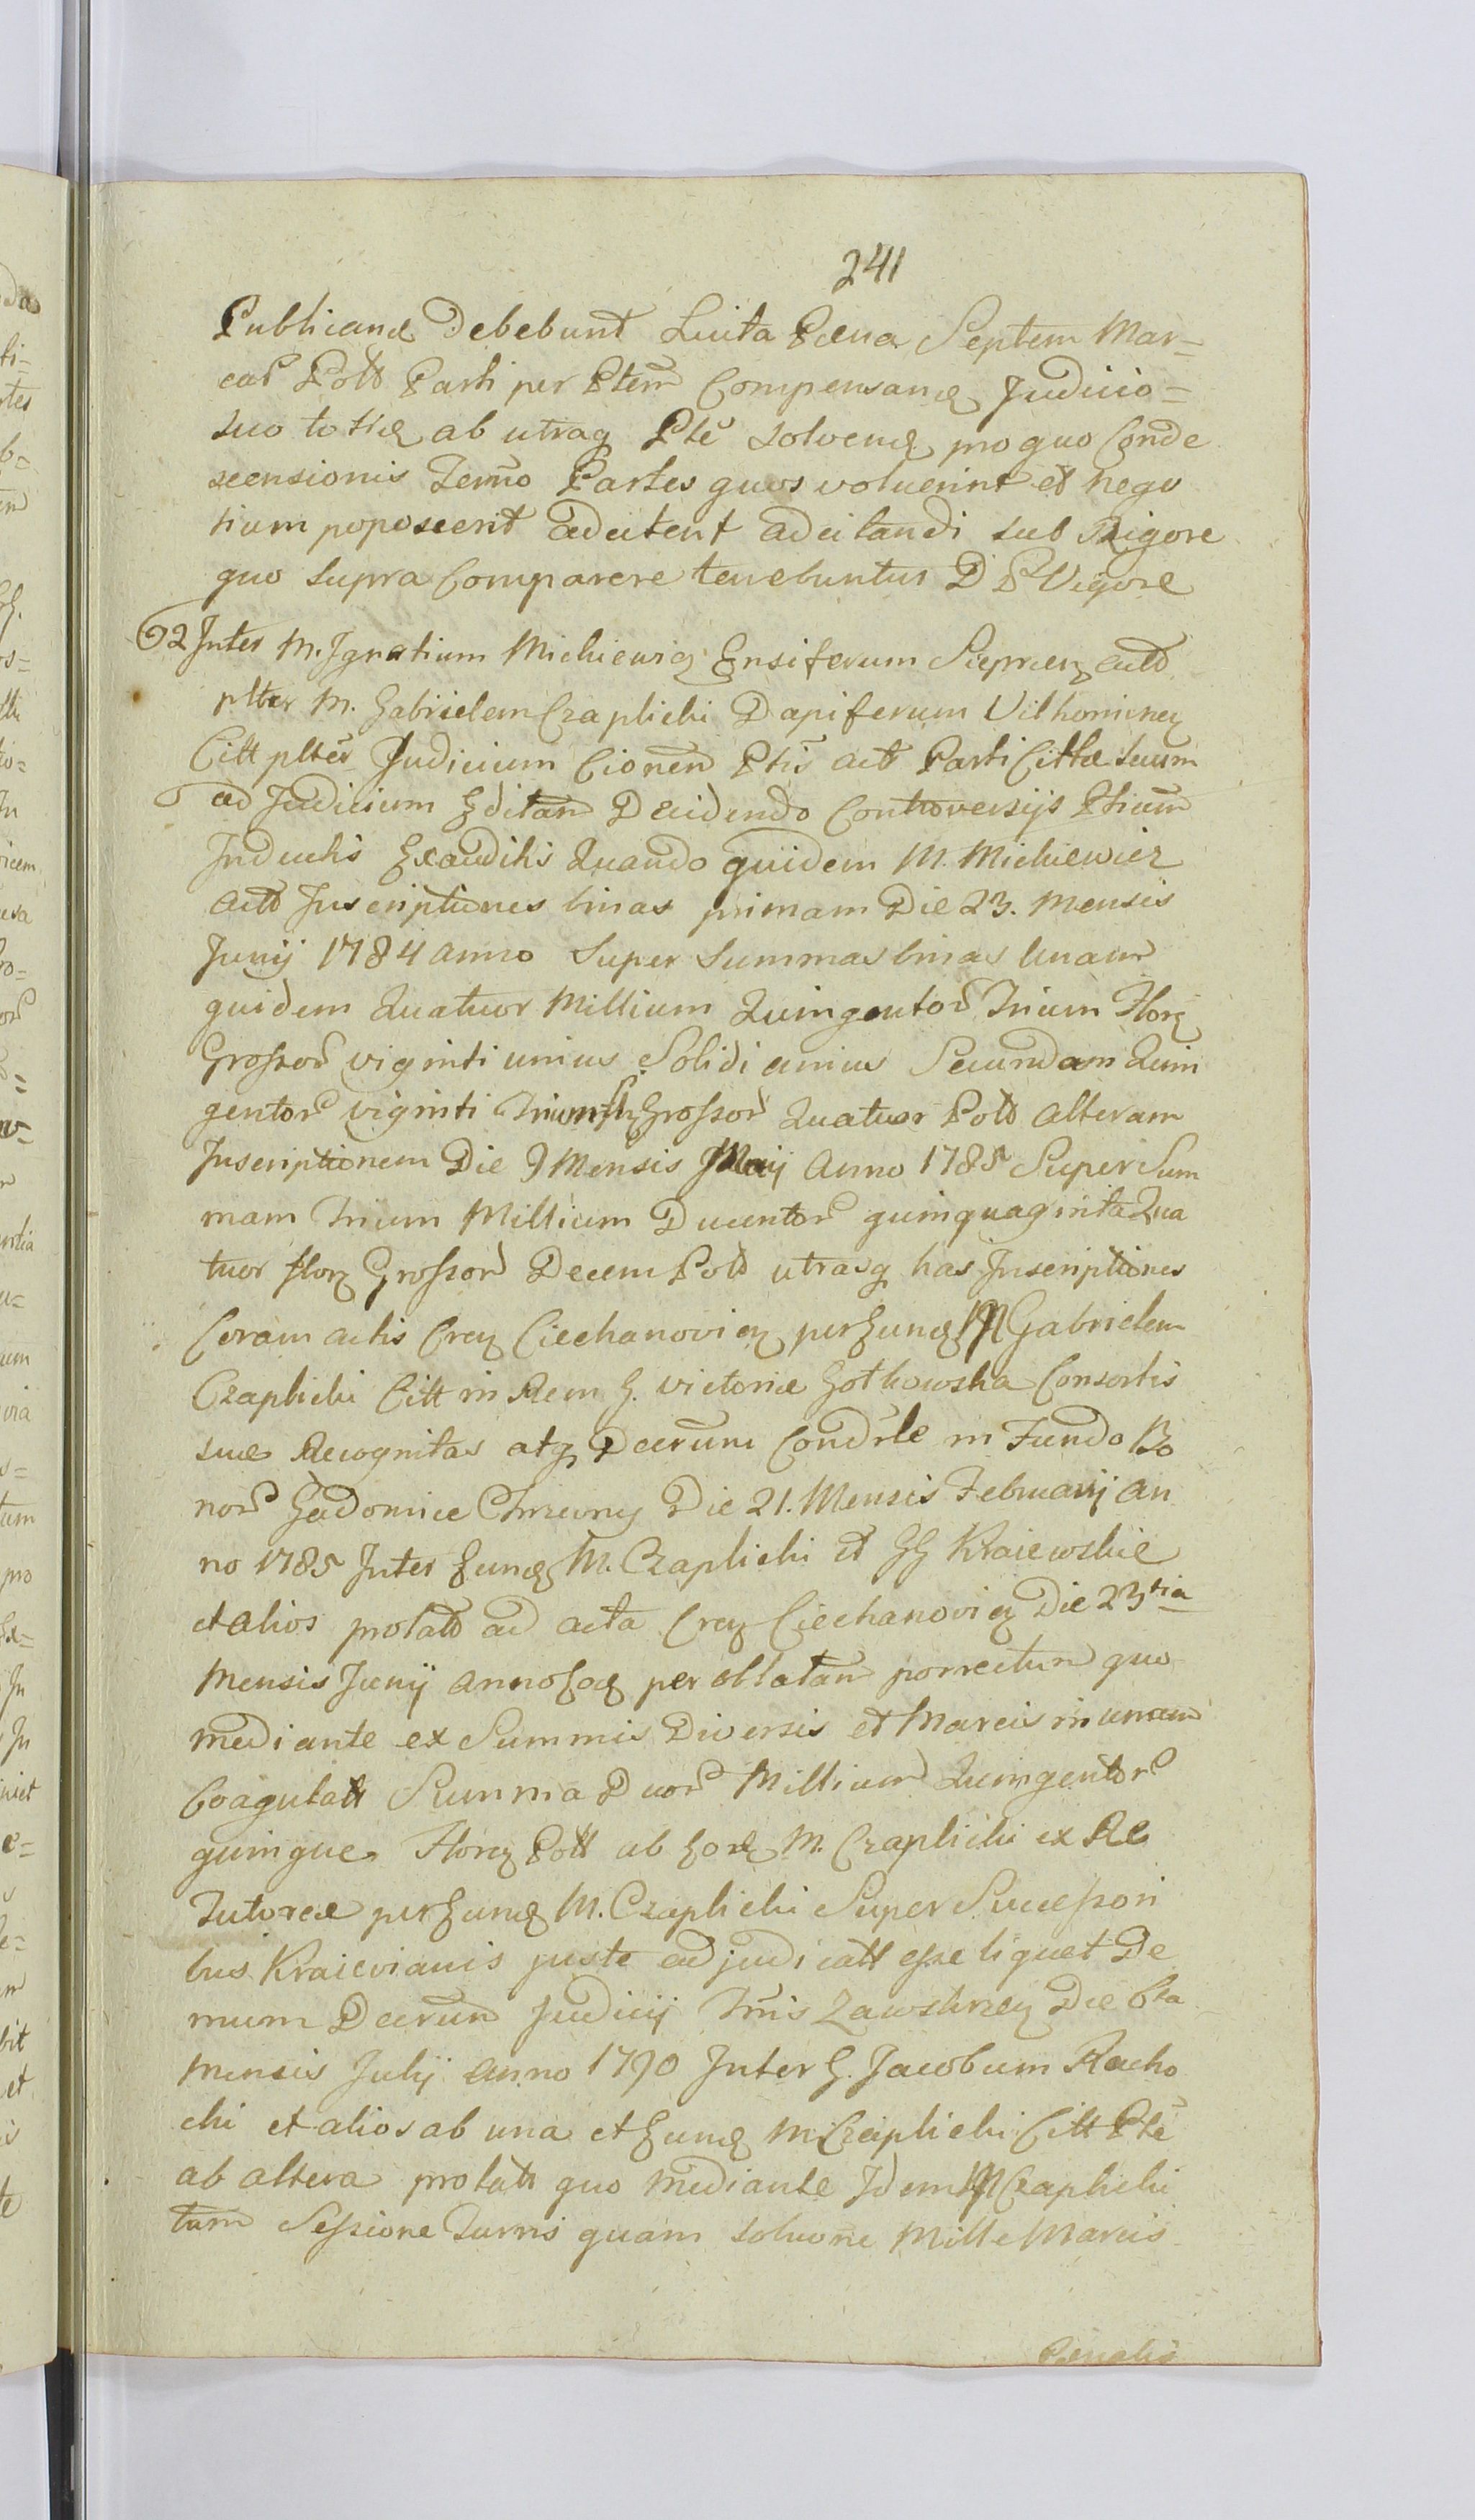 241
Publicanda Debebunt Luita Pæna Septem Mar=
car Poll Parti per Ptem Compensanda Judicio=
suo toties ab utraq Pte solvenda pro quo Conde
scensionis Termo Partes quos voluerint et nego
tium poposcerit adcitent adcitandi sub Rigore
quo supra Comparere tenebuntur D P Vigore
92 Inter M. Ignatium Michiewicz Ensiferum Sieprcen actt
plter M. Gabrielem Czaplicki Dapiferum Vilkomirien
Citt plter Judicium Cionem Ptis act Parti Cittæ suum
ad Judicium Editam Decidendo Controversijs Ptium
Inductis Exauditis Quando quidem M. Michiewicz
actt Inscriptiones binas primam Die 23. Mensis
Junij 1784 anno Super Summas binas Unam
quidem Quatuor Millium Quingentor Trium Flor
Grossor viginti unius Solidi unius Secundam Quin
gentor viginti Trium fl Grossor Quatuor Poll alteram
Inscriptionem Die 9 Mensis Maij Anno 1785 Super Sum
mam Trium Millium Ducentor quinquaginta Qua
tuor flor Grossor Decem Poll utrasq has Inscriptiones
Coram actis Cren Ciechanovien per Eund M Gabrielem
Czaplicki Citt in Rem G. Victoriæ Gotkowska Consortis
suæ Recognitas atq Decrum Condrle in Fundo Bo
nor Gadomice Chrzciany Die 21. Mensis Februarij an
no 1785 Inter Eund M. Czaplicki et GG Kraiewskie
et alios prolatt ad acta Cren Ciechanovien Die 23tia
Mensis Junij anno Eod per oblatam porrectum quo
mediante ex Summis Diversis et Marcis in unam
Coagulatt Summa Duor Millium Quingentor
quinque Floren Poll ab Eod M. Czaplicki ex Re
Tutorea per Eund M. Czaplicki Super Successori
bus Kraievianis juste adjudicatt esse liquet De
mum Decrum Judicij Tris Zawskrzen Die 6ta
Mensis Julij anno 1790 Inter G. Jacobum Racho
cki et alios ab una et Eund M Czaplicki Citt Pte
ab altera prolatt quo Mediante Idem M Czaplicki
tam Sessione Turris quam solucone Mille Marcis
Pænalis